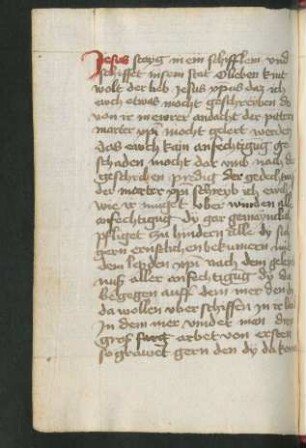 Jesus staig in ein schifflein vnd
schiffet in sein stat O lieben kint
wolt der lieb Jesus xpus daz ich
euch etwas mocht geschreiben da
von ir in ewrer andacht der pittern
marter xpi mocht gelert werden
das euch kain anfechtigug ge
schaden mocht dar vmb nach der
geschriben predig der gedechtnuß
der marter xpi schreyb ich euch
wie ir muget vber winden alle
anfechtigug dy gar gemaynclich
pfliget zu hindern alle dy sich
gern ernstlichen bekumern mit
dem leyden xpi nach dem gleich
nuß aller anfechtigug dy da
begegen auff dem mer den dy
da wollen vber schiffen in
In dem mer vindet man drey
groß arbet von ersten
so grawet gern den dy da